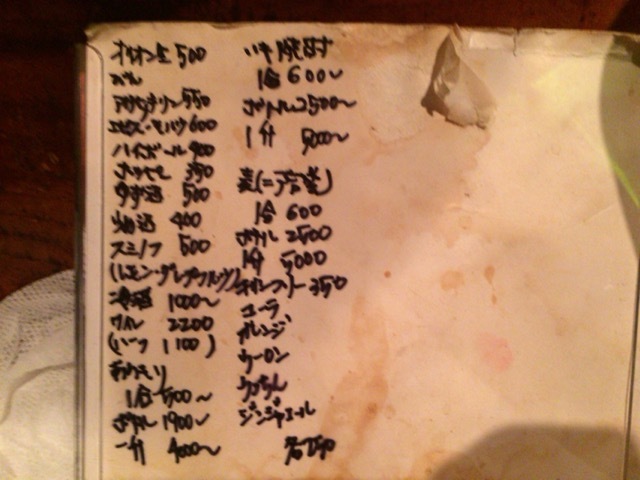 オリオン生 500
ビん
アサヒ 550
エビス・モルツ 600
ハイボール 400
ホッピー 350
500
400
スミノフ 500
(レモン・グレープフルーツ)
冷酒 1000〜
ワイン 2200
(ハーフ 1100)
あわもり
1合 500〜
ボトル 1900〜
一升 4000〜
いも焼酎
1合 600〜
ボトル 2500〜
1升 5000〜
麦(二階堂)
1合 600
ボトル 2500
1升 5000
オリオンフリー 350
コーラ
オレンジ
ウーロン
うっちん
ジンジャエール
各150